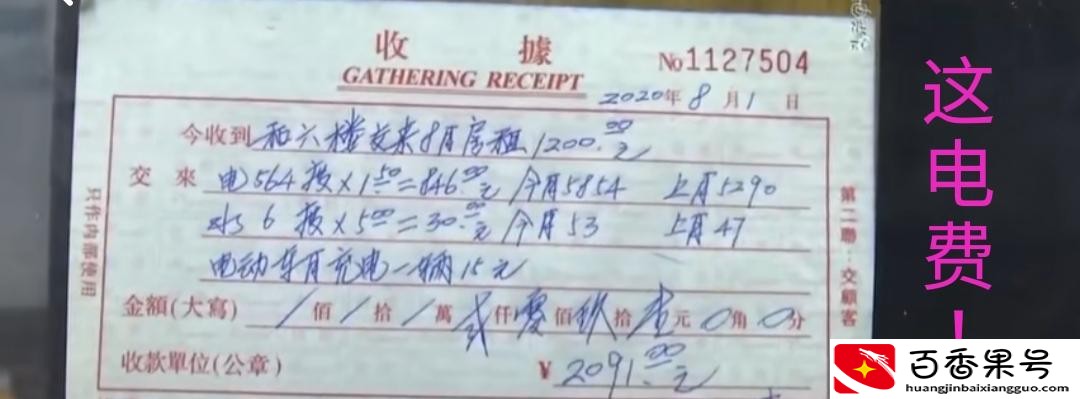 收據
№1127504
GATHERING RECEIPT
2020年8月1日
今收到和六楼交来8月房租1200.00元
交來 电564按×1.50=846.00元 今月5854 上月5290
水6按×5.00=30.00元 今月53 上月47
电动车月充电一辆15元
金額(大寫) /佰/拾/萬贰仟零佰玖拾壹元0角0分
收款單位(公章) ¥2091.00元
只作内部使用
第二聯：交顧客
这电费！
百香果号
huangjinbaixiangguo.com